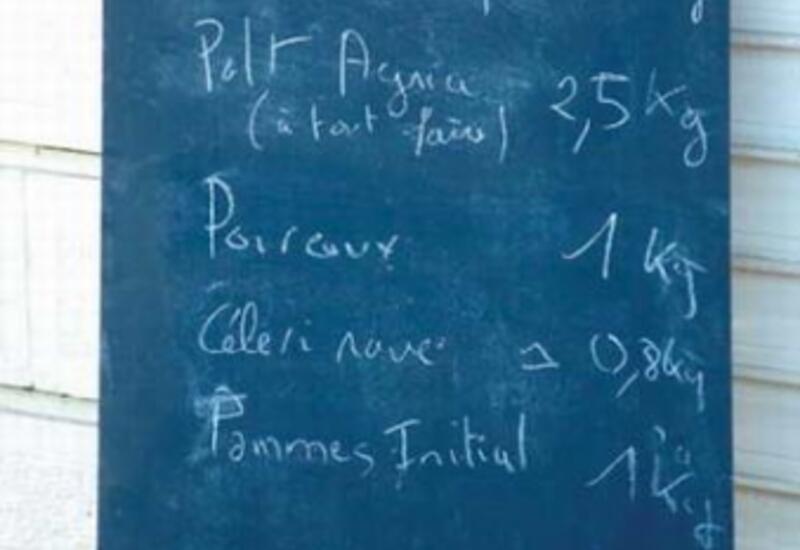 Pdt Agria 2,5 Kg
(à tout faire)
Poireaux 1 Kg
Céleri rave 1 0,8Kg
Pommes Initial 1 Kg